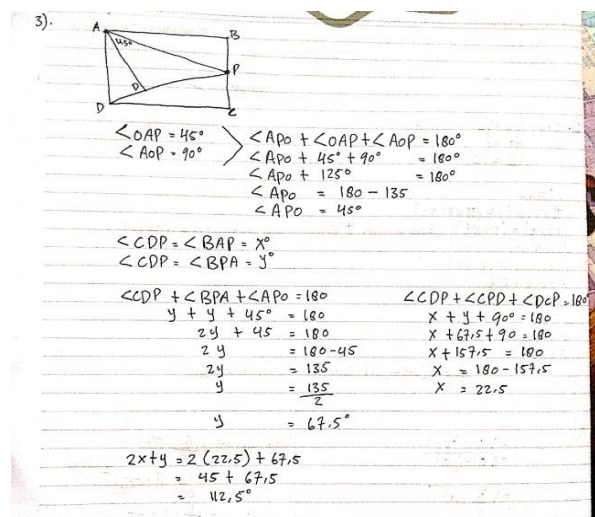 3).
A
B
45°
P
O
D
C
∠OAP = 45°
∠AOP = 90°
∠APO + ∠OAP + ∠AOP = 180°
∠APO + 45° + 90° = 180°
∠APO + 125° = 180°
∠APO = 180 - 135
∠APO = 45°
∠CDP = ∠BAP = x°
∠CDP = ∠BPA = y°
∠CDP + ∠BPA + ∠APO = 180
y + y + 45° = 180
2y + 45 = 180
2y = 180 - 45
2y = 135
y = 135
2
y = 67.5°
∠CDP + ∠CPD + ∠DCP = 180°
x + y + 90° = 180
x + 67,5 + 90 = 180
x + 157,5 = 180
x = 180 - 157,5
x = 22.5
2x+y = 2 (22,5) + 67,5
= 45 + 67,5
= 112,5°